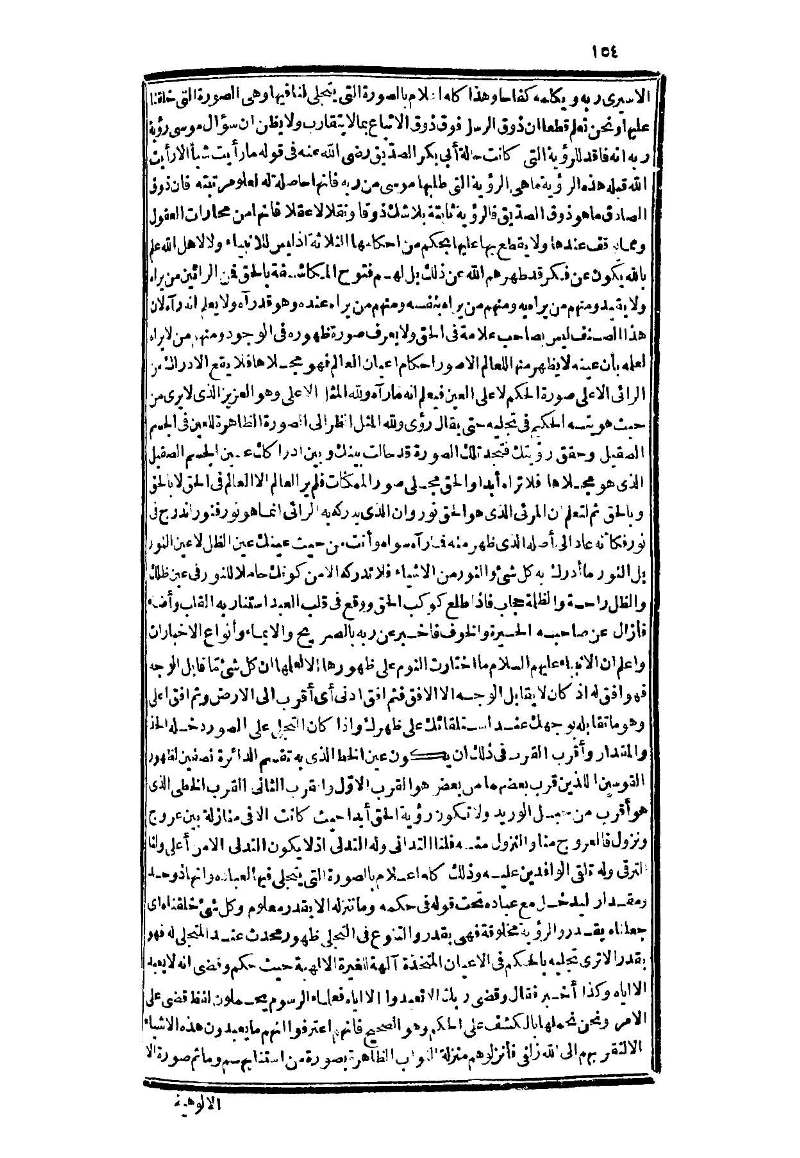 ١٥٤
الاسيرى ربه ويكلمه كفاحا وهذا كله اعلام بالصورة التى يتجلى لنا فيها وهى الصورة التى خلقنا
عليها ونحن نعلم قطعا ان ذوق الرسل فوق ذوق الاتباع بما لا يتقارب ولا يظن ان سؤال موسى رؤية
ربه انه فاقد للرؤية التى كانت حالة أبى بكر الصديق رضى الله عنه فى قوله ما رأيت شيأ الا رأيت
الله قبله هذه الرؤية ما هى الرؤية التى طلبها موسى من ربه فانها حاصلة له لعلو مرتبته فان ذوق
الصادق ما هو ذوق الصديق فالرؤية ثابتة بلا شك ذوقا ونقلا لا عقلا فانها من محارات العقول
ومما يقف عندها ولا يقطع بها عليها بحكم من احكامها الثلاثة اذ ليس للانبياء ولا لاهل الله علم
بالله يكون عن فكر قد طهرهم الله عن ذلك بل لهم فتوح المكاشفة بالحق فمن الرائين من يراه
ولا يقيد ومنهم من يراه به ومنهم من يراه بنفسه ومنهم من يراه عنده وهو قد رآه ولا يعلم انه رآه لان
هذا الصنف ليس بصاحب علامة فى الحق ولا يعرف صورة ظهوره فى الوجود ومنهم من لا يراه
لعله بأن عينه لا يظهر منها للعالم الا صور احكام اعيان العالم فهو مجلاها فلا يقع الادراك من
الرائى الا على صورة الحكم لا على العين فيعلم انه ما رآه ولله المثل الاعلى وهو العزيز الذى لا يرى من
حيث هويته الحكيم فى تجليه حتى يقال رؤى ولله المثل انظر الى الصورة الظاهرة للعين فى الجسم
الصقيل وحقق رؤيتك فتجد تلك الصورة قد حالت بينك وبين ادراكك عين الجسم الصقيل
الذى هو مجلاها فلا تراه أبدا والحق مجلى صور الممكنات فلم ير العالم الا العالم فى الحق لا بالحق
وبالحق ثم لتعلم ان المرئى الذى هو الحق نور وان الذى يدركه به الرائى انما هو نور فنور اندرج فى
نور فكأنه عاد الى أصله الذى ظهر منه فما رآه سواه وأنت من حيث عينك عين الظل لا عين النور
بل النور ما أدرك به كل شئ والنور من الاشياء فلا تدركه الا من كونك حاملا للنور فى عين ظلك
والظل راحة والظلمة حجاب فاذا طلع كوكب الحق ووقع فى قلب العبد استنار به القلب وأضاء
فأزال عن صاحبه الحيرة والخوف فاخبر عن ربه بالصريح والايماء وأنواع الاخبارات
واعلم ان الانبياء عليهم السلام ما اختارت النوم على ظهورها الا لعلمها ان كل شئ ما قابل الوجه
فهو افق له اذ كان لا يقابل الوجه الا الافق فثم افق ادنى أى أقرب الى الارض وثم افق اعلى
وهو ما تقابله بوجهك عند استلقائك على ظهرك واذا كان التجلى على الصور دخله الحد
والمقدار وأقرب القرب فى ذلك ان يكون عين الخط الذى به تقسم الدائرة نصفين لظهور
القوسين اللذين قرب بعضهما من بعض هو القرب الاول والقرب الثانى القرب الخطى الذى
هو أقرب من حبل الوريد ولا تكون رؤية الحق أبدا حيث كانت الا فى منازلة بين عروج
ونزول فالعروج منا والنزول منه فلنا التدانى وله التدلى اذ لا يكون التدلى الا من أعلى ولنا
الترقى وله تلقى الوافدين عليه وذلك كله اعلام بالصورة التى يتجلى فيها لعباده وانها ذو حد
ومقدار ليدخل مع عباده تحت قوله فى حكمه وما ننزله الا بقدر معلوم وكل شئ خلقناه اى
جعلناه بقدر والرؤية مخلوقة فهى بقدر والتنوع فى التجلى ظهور محدث عند المتجلى له فهو
بقدر الا ترى تجليه بالحكم فى الاعيان المتخذة آلهة للغيرة الالهية حيث حكم وقضى انه لا يعبد
الا اياه وكذا أخبر فقال وقضى ربك الا تعبدوا الا اياه فعلماء الرسوم يحملون لفظ قضى على
الامر ونحن نحملها بالكشف على الحكم وهو الصحيح فانهم اعترفوا انهم ما يعبدون هذه الاشياء
الا لتقربهم الى الله زلفى فأنزلوهم منزلة النواب الظاهرة بصورة من استنابهم وما ثم صورة الا
الالوهية